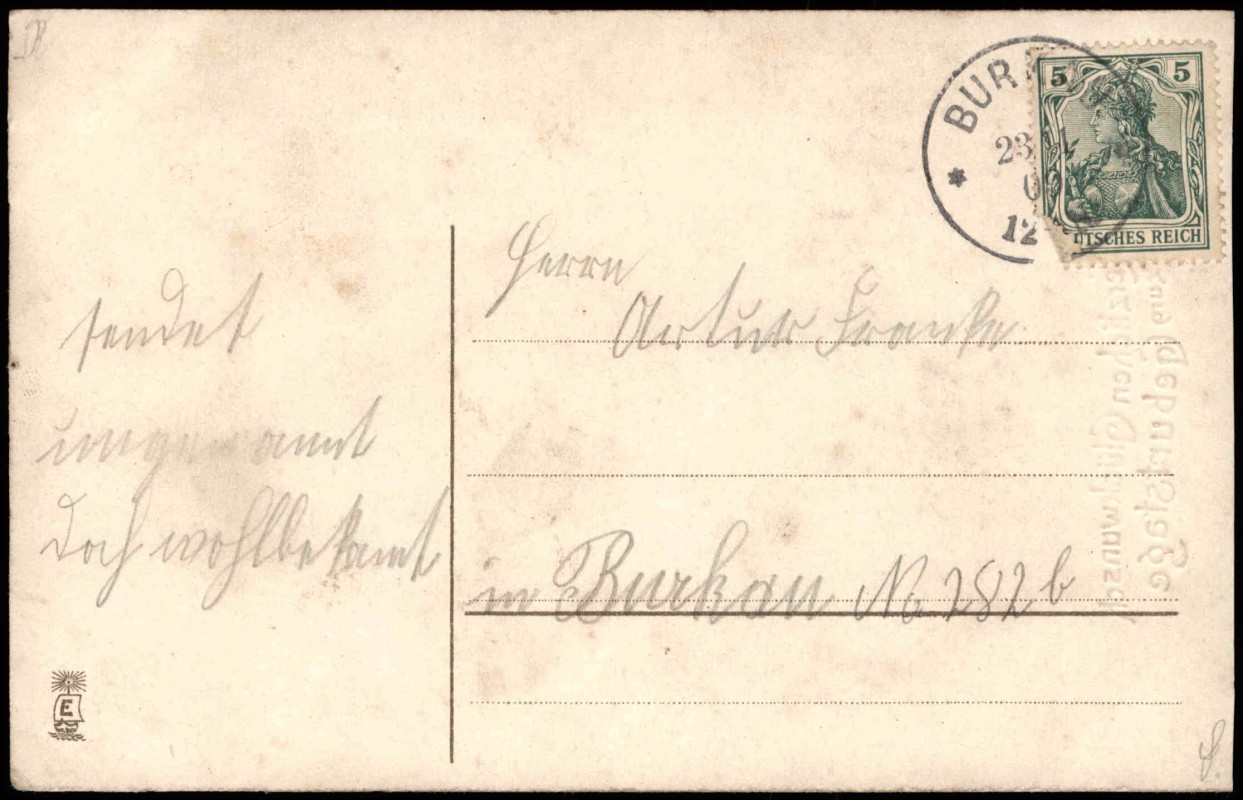 BUR
23 4
12
5 5
DEUTSCHES REICH
Herrn
Artur Franke
in Burkau No 282 b
sendet
ungenannt
doch wohlbekannt
E
Zum Geburtstage
herzlichen Glückwunsch